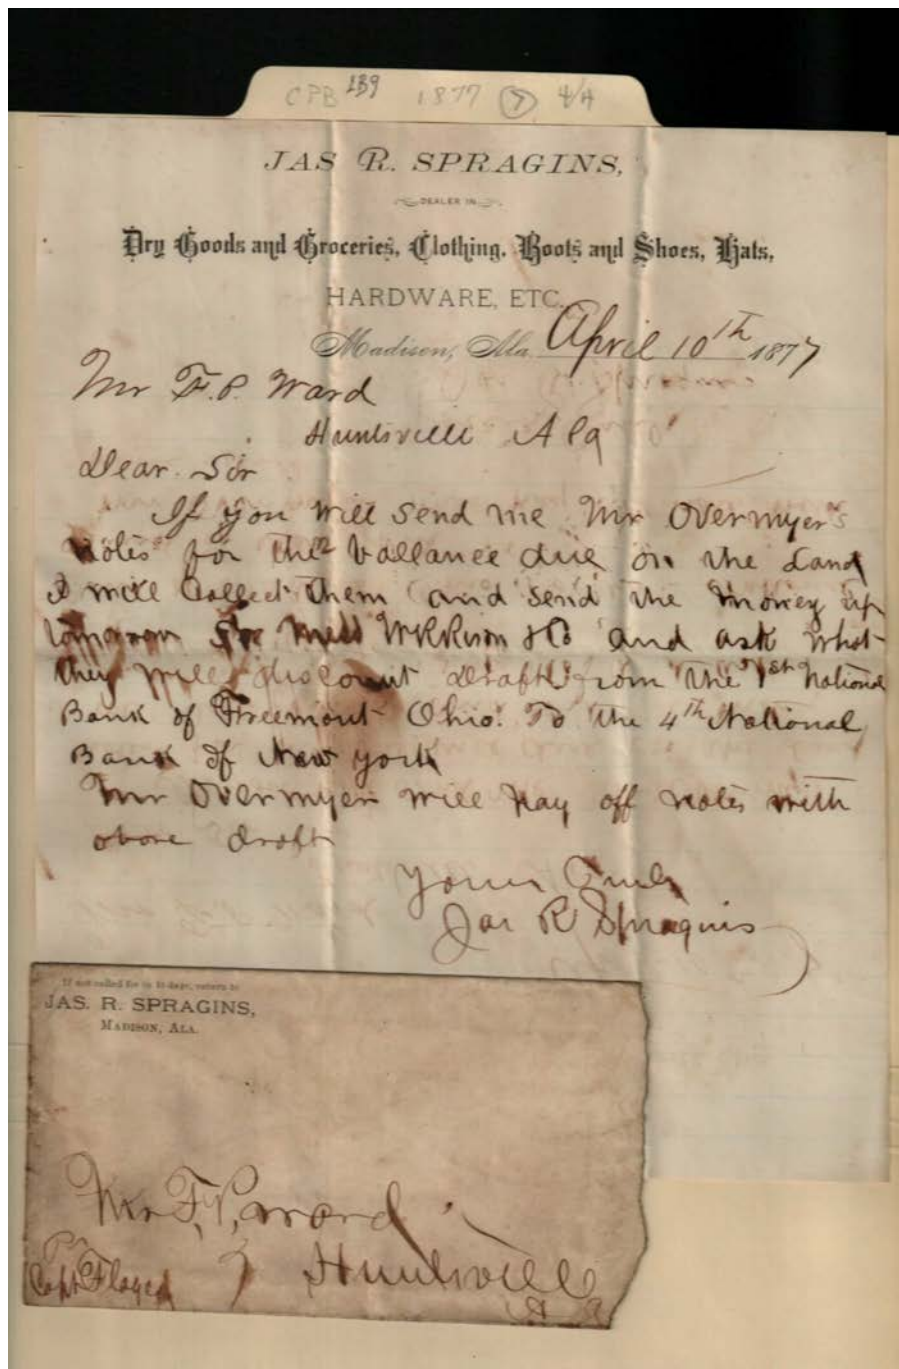 CPB 139 1877 (7) 4/4
JAS R. SPRAGINS,
DEALER IN
Dry Goods and Groceries, Clothing, Boots and Shoes, Hats,
HARDWARE, ETC.
Madison, Ala. April 10th 1877
Mr F.P. Ward
Huntsville Ala
Dear Sir
If you will send me Mr Overmyer's
Notes for the ballance due on the Land
I will Collect them and send the money up
tomorrow and ask what
they will discount Draft from the 1st National
Bank of Freemont Ohio. To the 4th National
Bank of New York
Mr Overmyer will pay off notes with
above draft
Yours Truly
Jas R Spragins
If not called for in 10 days, return to
JAS. R. SPRAGINS,
MADISON, ALA.
Mr F.P. Ward
Huntsville
Capt Floyed